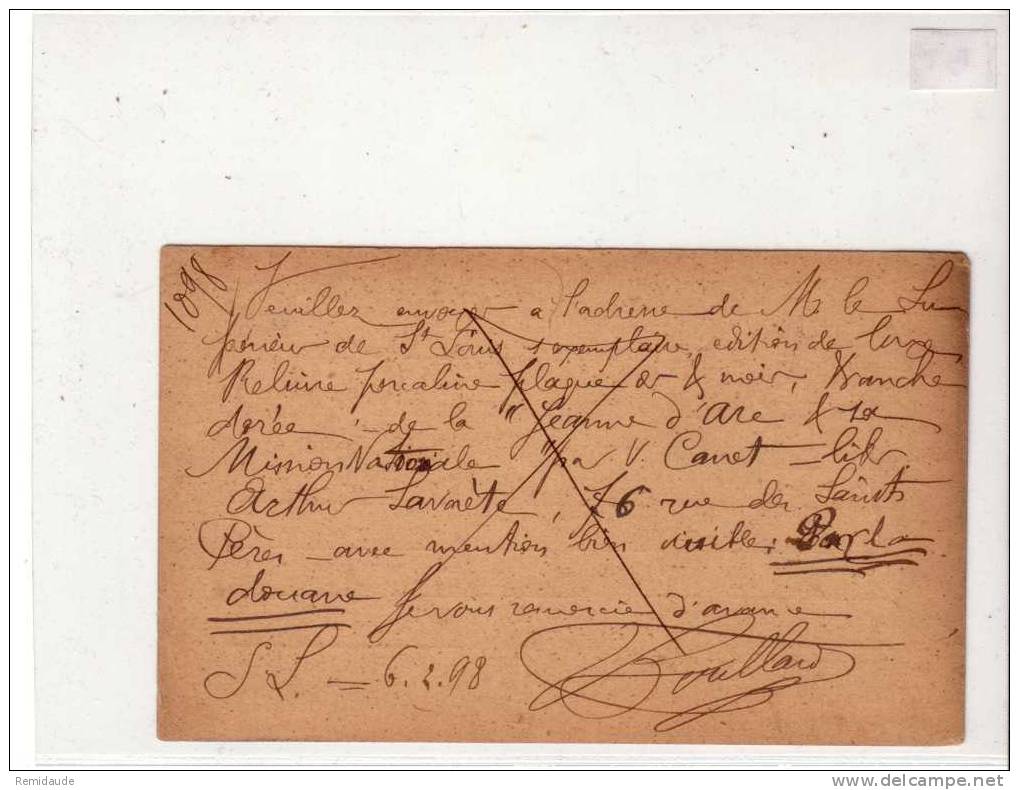 1898
Veuillez envoyer à l'adresse de M. le Su
périeur de St Louis 1 exemplaire, édition de luxe
Reliure porcaline plaque or & noir, tranche
dorée - de la "Jeanne d'Arc & sa
Mission Nationale" par V. Canet - libr
Arthur Savaète, 76 rue des Saints
Pères - avec mention bien visible: Par la
douane Je vous remercie d'avance
S L. - 6.2.98 Bouillard
Remidaude
delcampe.net